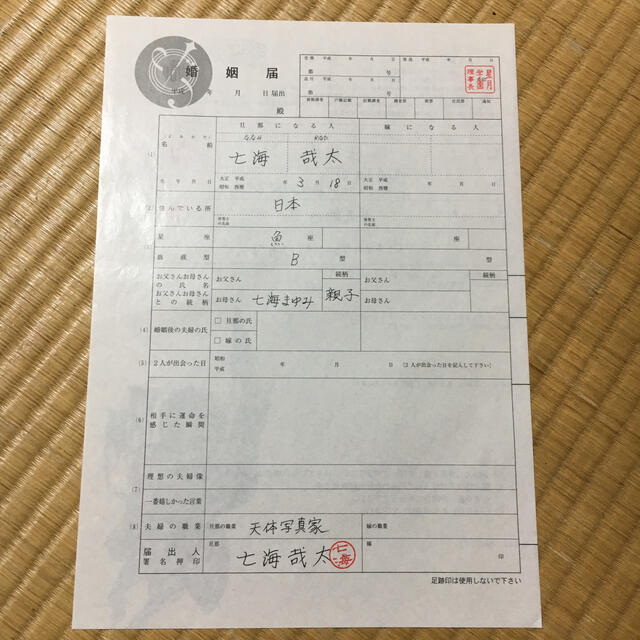 婚姻届
平成 年 月 日届出
殿
受理 平成 年 月 日
第 号
送付 平成 年 月 日
第 号
発送 平成 年 月 日
星月学園理事長
旦那になる人
嫁になる人
ななみ かなた
(1) 名前 七海 哉太
生年月日 大正 平成 昭和 西暦 年 3月 18日
大正 平成 昭和 西暦 年 月 日
(2) 住んでいる所 日本
世帯主の名前
世帯主の名前
星座 魚座
座
血液型 B型
型
お父さんお母さんの氏名
お父さんお母さんとの続柄
お父さん 続柄
お母さん 七海まゆみ 親子
お父さん 続柄
お母さん
(4) 婚姻後の夫婦の氏
□ 旦那の氏
□ 嫁の氏
(5) 2人が出会った日 昭和 平成 年 月 日 [2人が出会った日を記入して下さい]
(6) 相手に運命を感じた瞬間
(7) 理想の夫婦像
一番嬉しかった言葉
(8) 夫婦の職業 旦那の職業 天体写真家 嫁の職業
届出人 署名押印 旦那 七海哉太 七海 嫁 印
足跡印は使用しないで下さい